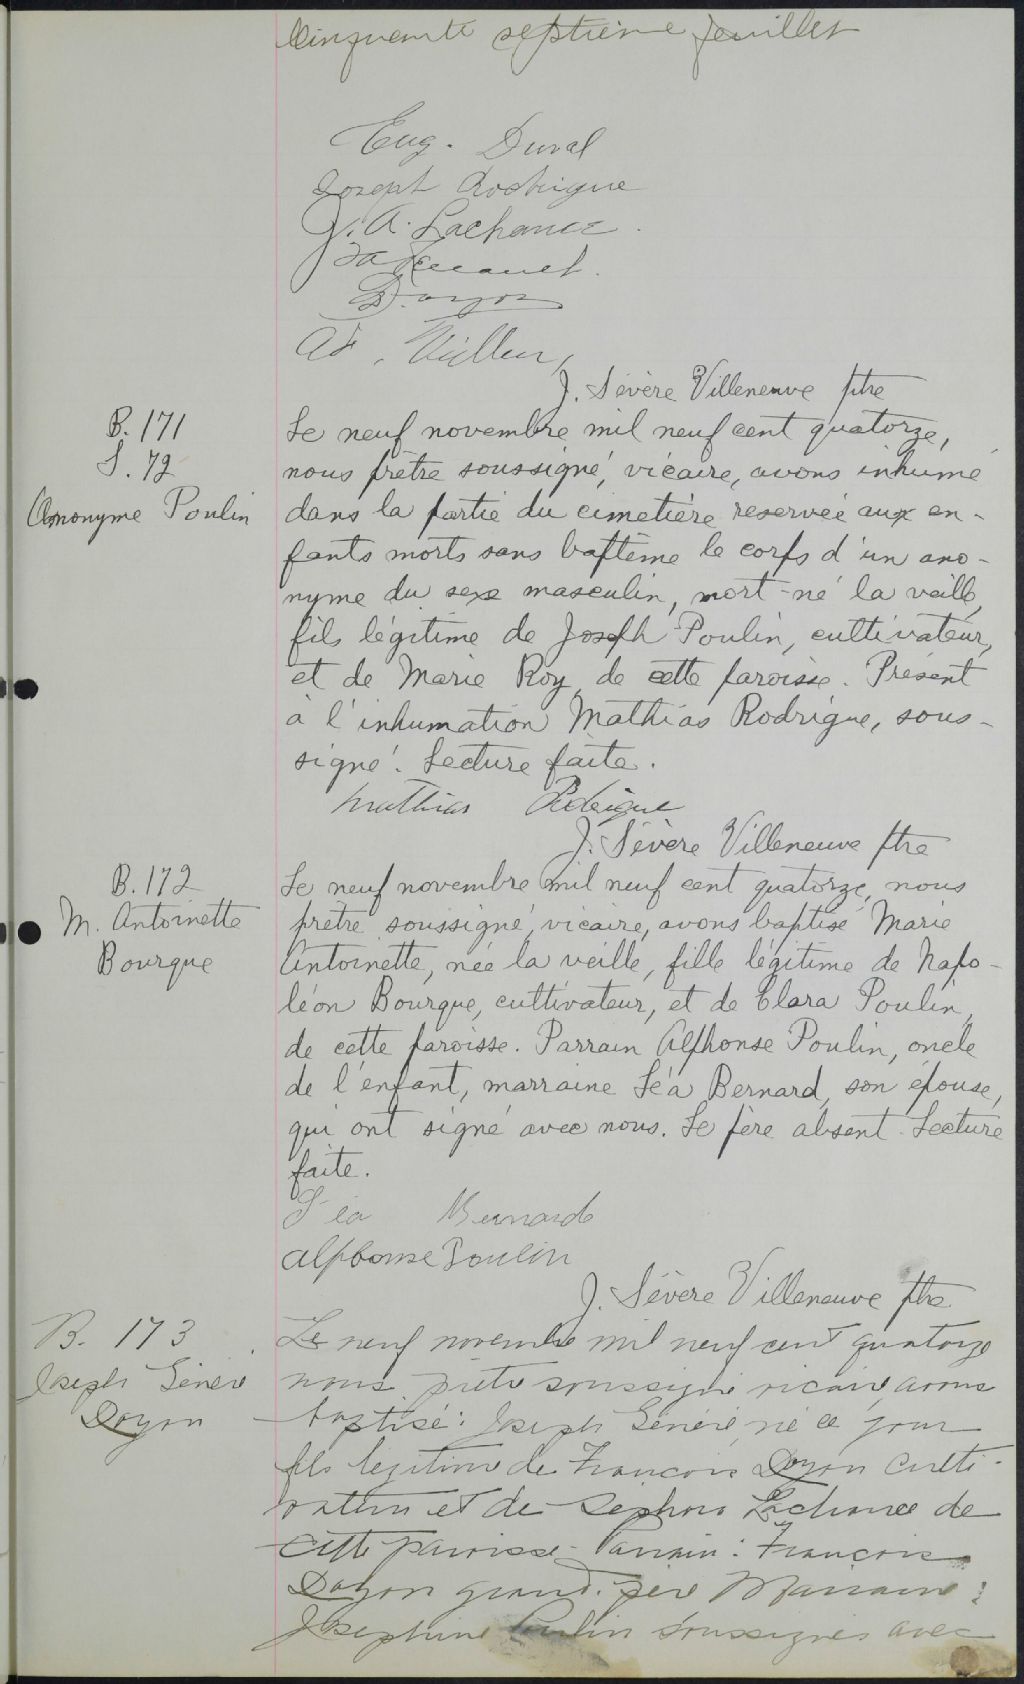 Cinquante septième feuillet
Eug. Duval
Joseph Rodrigue
J. A. Lachance
Doyon
J. Sévère Villeneuve ptre
B. 171
S. 72
Anonyme Poulin
Le neuf novembre mil neuf cent quatorze,
nous prêtre soussigné, vicaire, avons inhumé
dans la partie du cimetière reservée aux en-
fants morts sans baptême le corps d'un ano-
nyme du sexe masculin, mort-né la veille,
fils légitime de Joseph Poulin, cultivateur,
et de Marie Roy, de cette paroisse. Présent
à l'inhumation Mathias Rodrigue, sous-
signé. Lecture faite.
Mathias Rodrigue
J. Sévère Villeneuve ptre
B. 172
M. Antoinette
Bourque
Le neuf novembre mil neuf cent quatorze, nous
prêtre soussigné, vicaire, avons baptisé Marie
Antoinette, née la veille, fille légitime de Napo-
léon Bourque, cultivateur, et de Clara Poulin,
de cette paroisse. Parrain Alphonse Poulin, oncle
de l'enfant, marraine Léa Bernard, son épouse,
qui ont signé avec nous. Le père absent. Lecture
faite.
Léa Bernard
Alphonse Poulin
J. Sévère Villeneuve ptre
B. 173
Joseph Généré
Doyon
Le neuf novembre mil neuf cent quatorze
nous prêtre soussigné vicaire avons
baptisé: Joseph Généré, né ce jour
fils légitime de Francois Doyon culti-
vateur et de Séphora Lachance de
cette paroisse - Parrain: Francois
Doyon grand-père Marraine:
Josephine Poulin soussignés avec